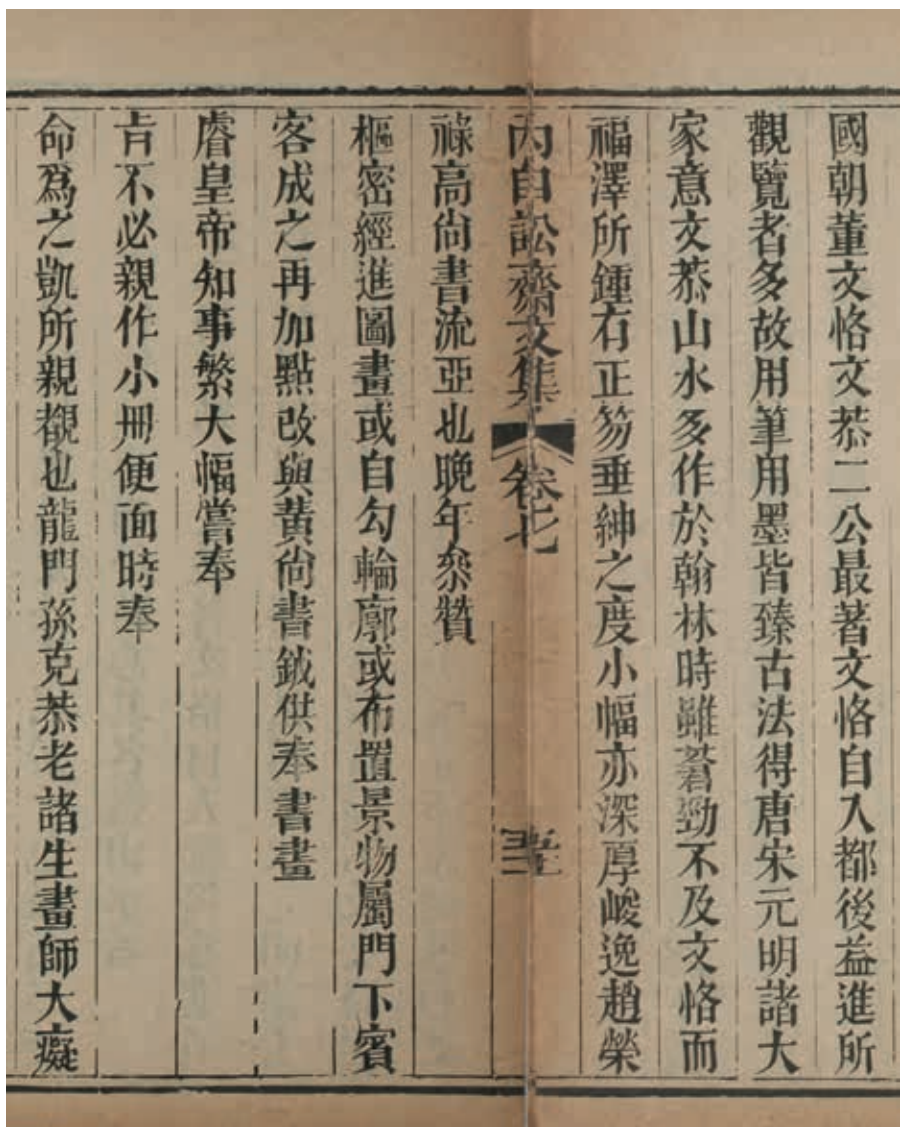 國朝董文恪文恭二公最著文恪自入都後益進所
觀覽者多故用筆用墨皆臻古法得唐宋元明諸大
家意文恭山水多作於翰林時雖蒼勁不及文恪而
福澤所鍾右正笏垂紳之度小幅亦深厚峻逸趙榮
內自訟齋文集 卷七
祿高尙書流亞也晚年叅贊
樞密經進圖畫或自勾輪廓或布置景物屬門下賓
客成之再加點改與黃尙書鉞供奉書畫
睿皇帝知事繁大幅嘗奉
㫖不必親作小冊便面時奉
命爲之凱所親覩也龍門孫克恭老諸生畫師大癡